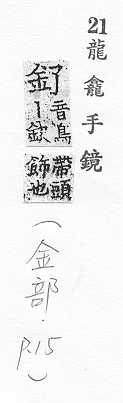 21 龍龕手鏡
音烏丨欽帶頭飾也
(金部．P.15)